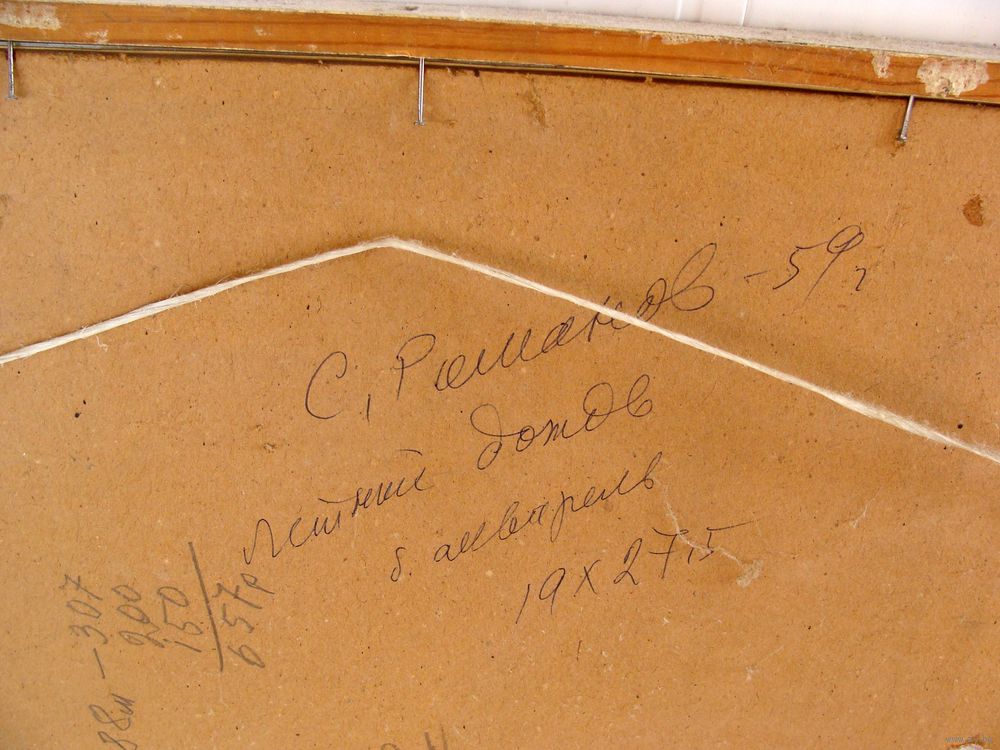 С. Романов - 59 г
летний дождь
б. акварель
19 х 27,5
307
200
150
657р